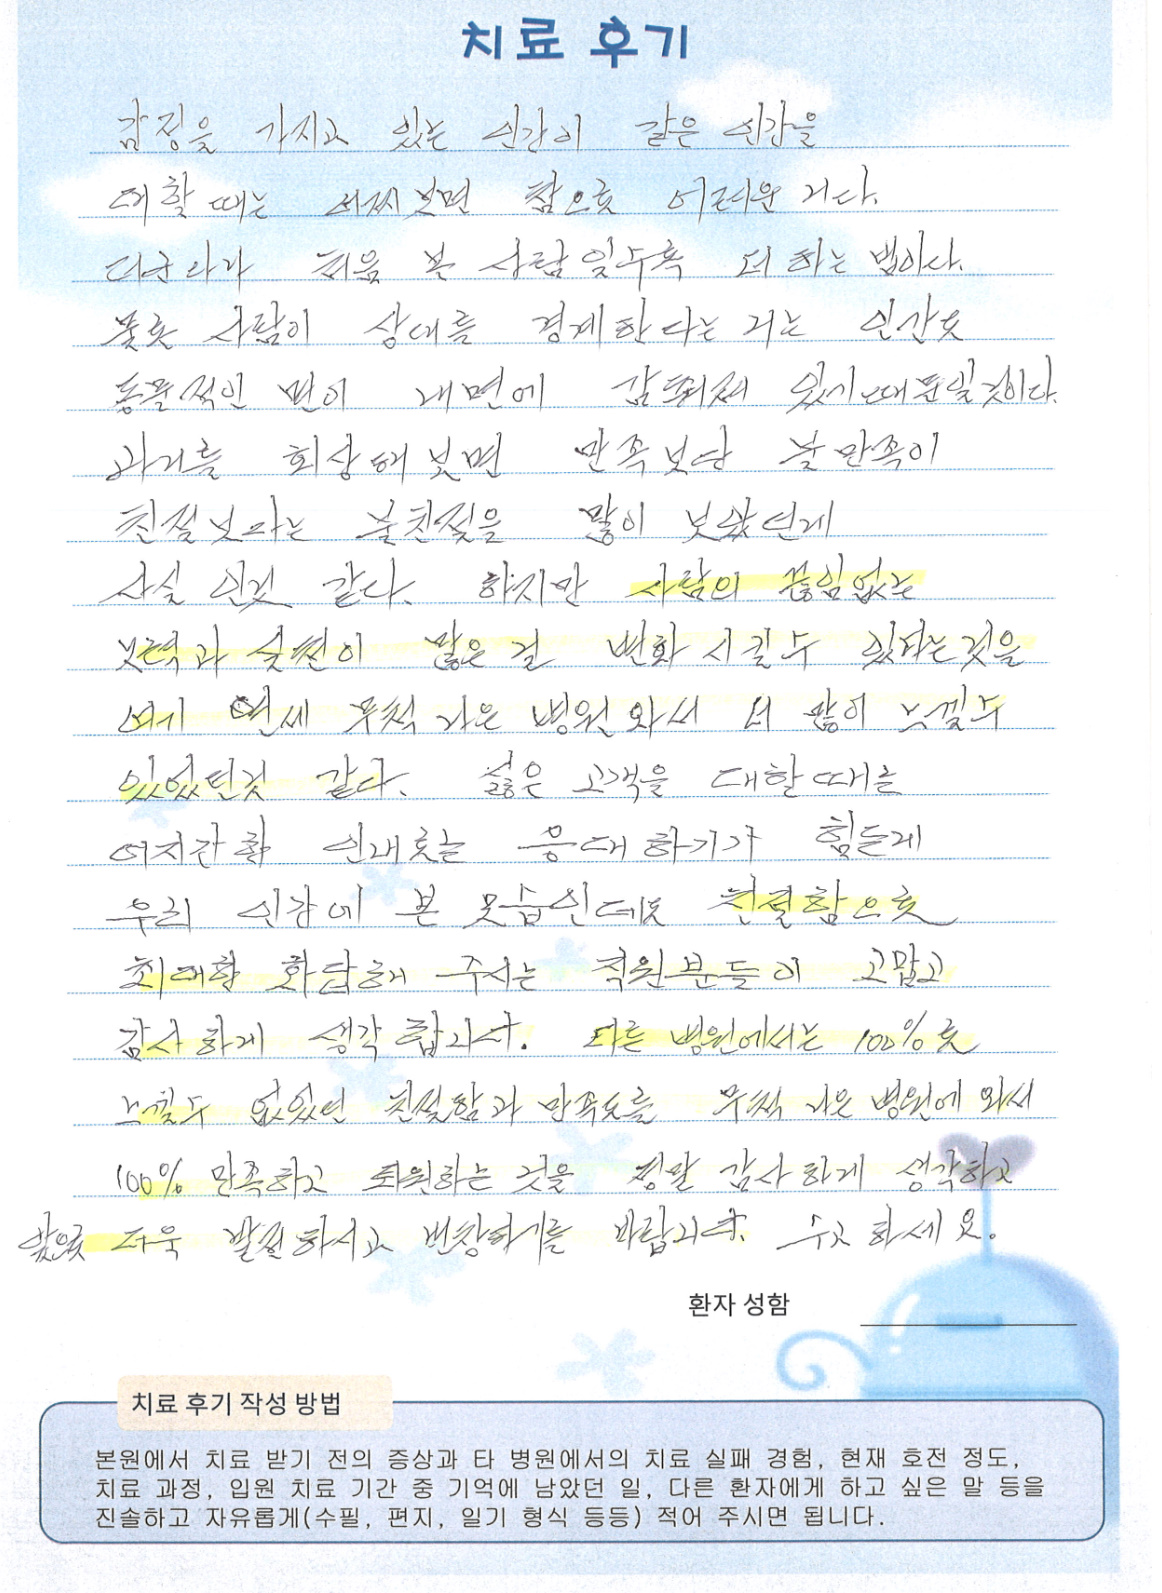 치료 후기
감정을 가지고 있는 인간이 같은 인간을
대할 때는 어찌보면 참으로 어려운 거다.
더군다나 처음 본 사람일수록 더 하는 법이다.
물론 사람이 상대를 경계한다는 거는 인간도
동물적인 면이 내면에 감춰져 있기 때문일 것이다.
과거를 회상해 보면 만족보단 불만족이
친절보다는 불친절을 많이 보았던게
사실 인것 같다. 하지만 사람의 끊임없는
노력과 실천이 많은 걸 변화 시킬 수 있다는 것을
여기 연세 무척 나은 병원 와서 더 많이 느낄 수
있었던것 같다. 싫은 고객을 대할때를
여지간한 인내로는 응대하기가 힘들게
우리 인간에 본 모습인데도 친절함으로
최대한 화답해 주시는 직원분들이 고맙고
감사하게 생각 합니다. 다른 병원에서는 100%로
느낄수 없었던 친절함과 만족도를 무척 나은 병원에 와서
100% 만족하고 퇴원하는 것을 정말 감사하게 생각하고
앞으로 더욱 발전하시고 번창하기를 바랍니다. 수고 하세요.
환자 성함
치료 후기 작성 방법
본원에서 치료 받기 전의 증상과 타 병원에서의 치료 실패 경험, 현재 호전 정도,
치료 과정, 입원 치료 기간 중 기억에 남았던 일, 다른 환자에게 하고 싶은 말 등을
진솔하고 자유롭게(수필, 편지, 일기 형식 등등) 적어 주시면 됩니다.